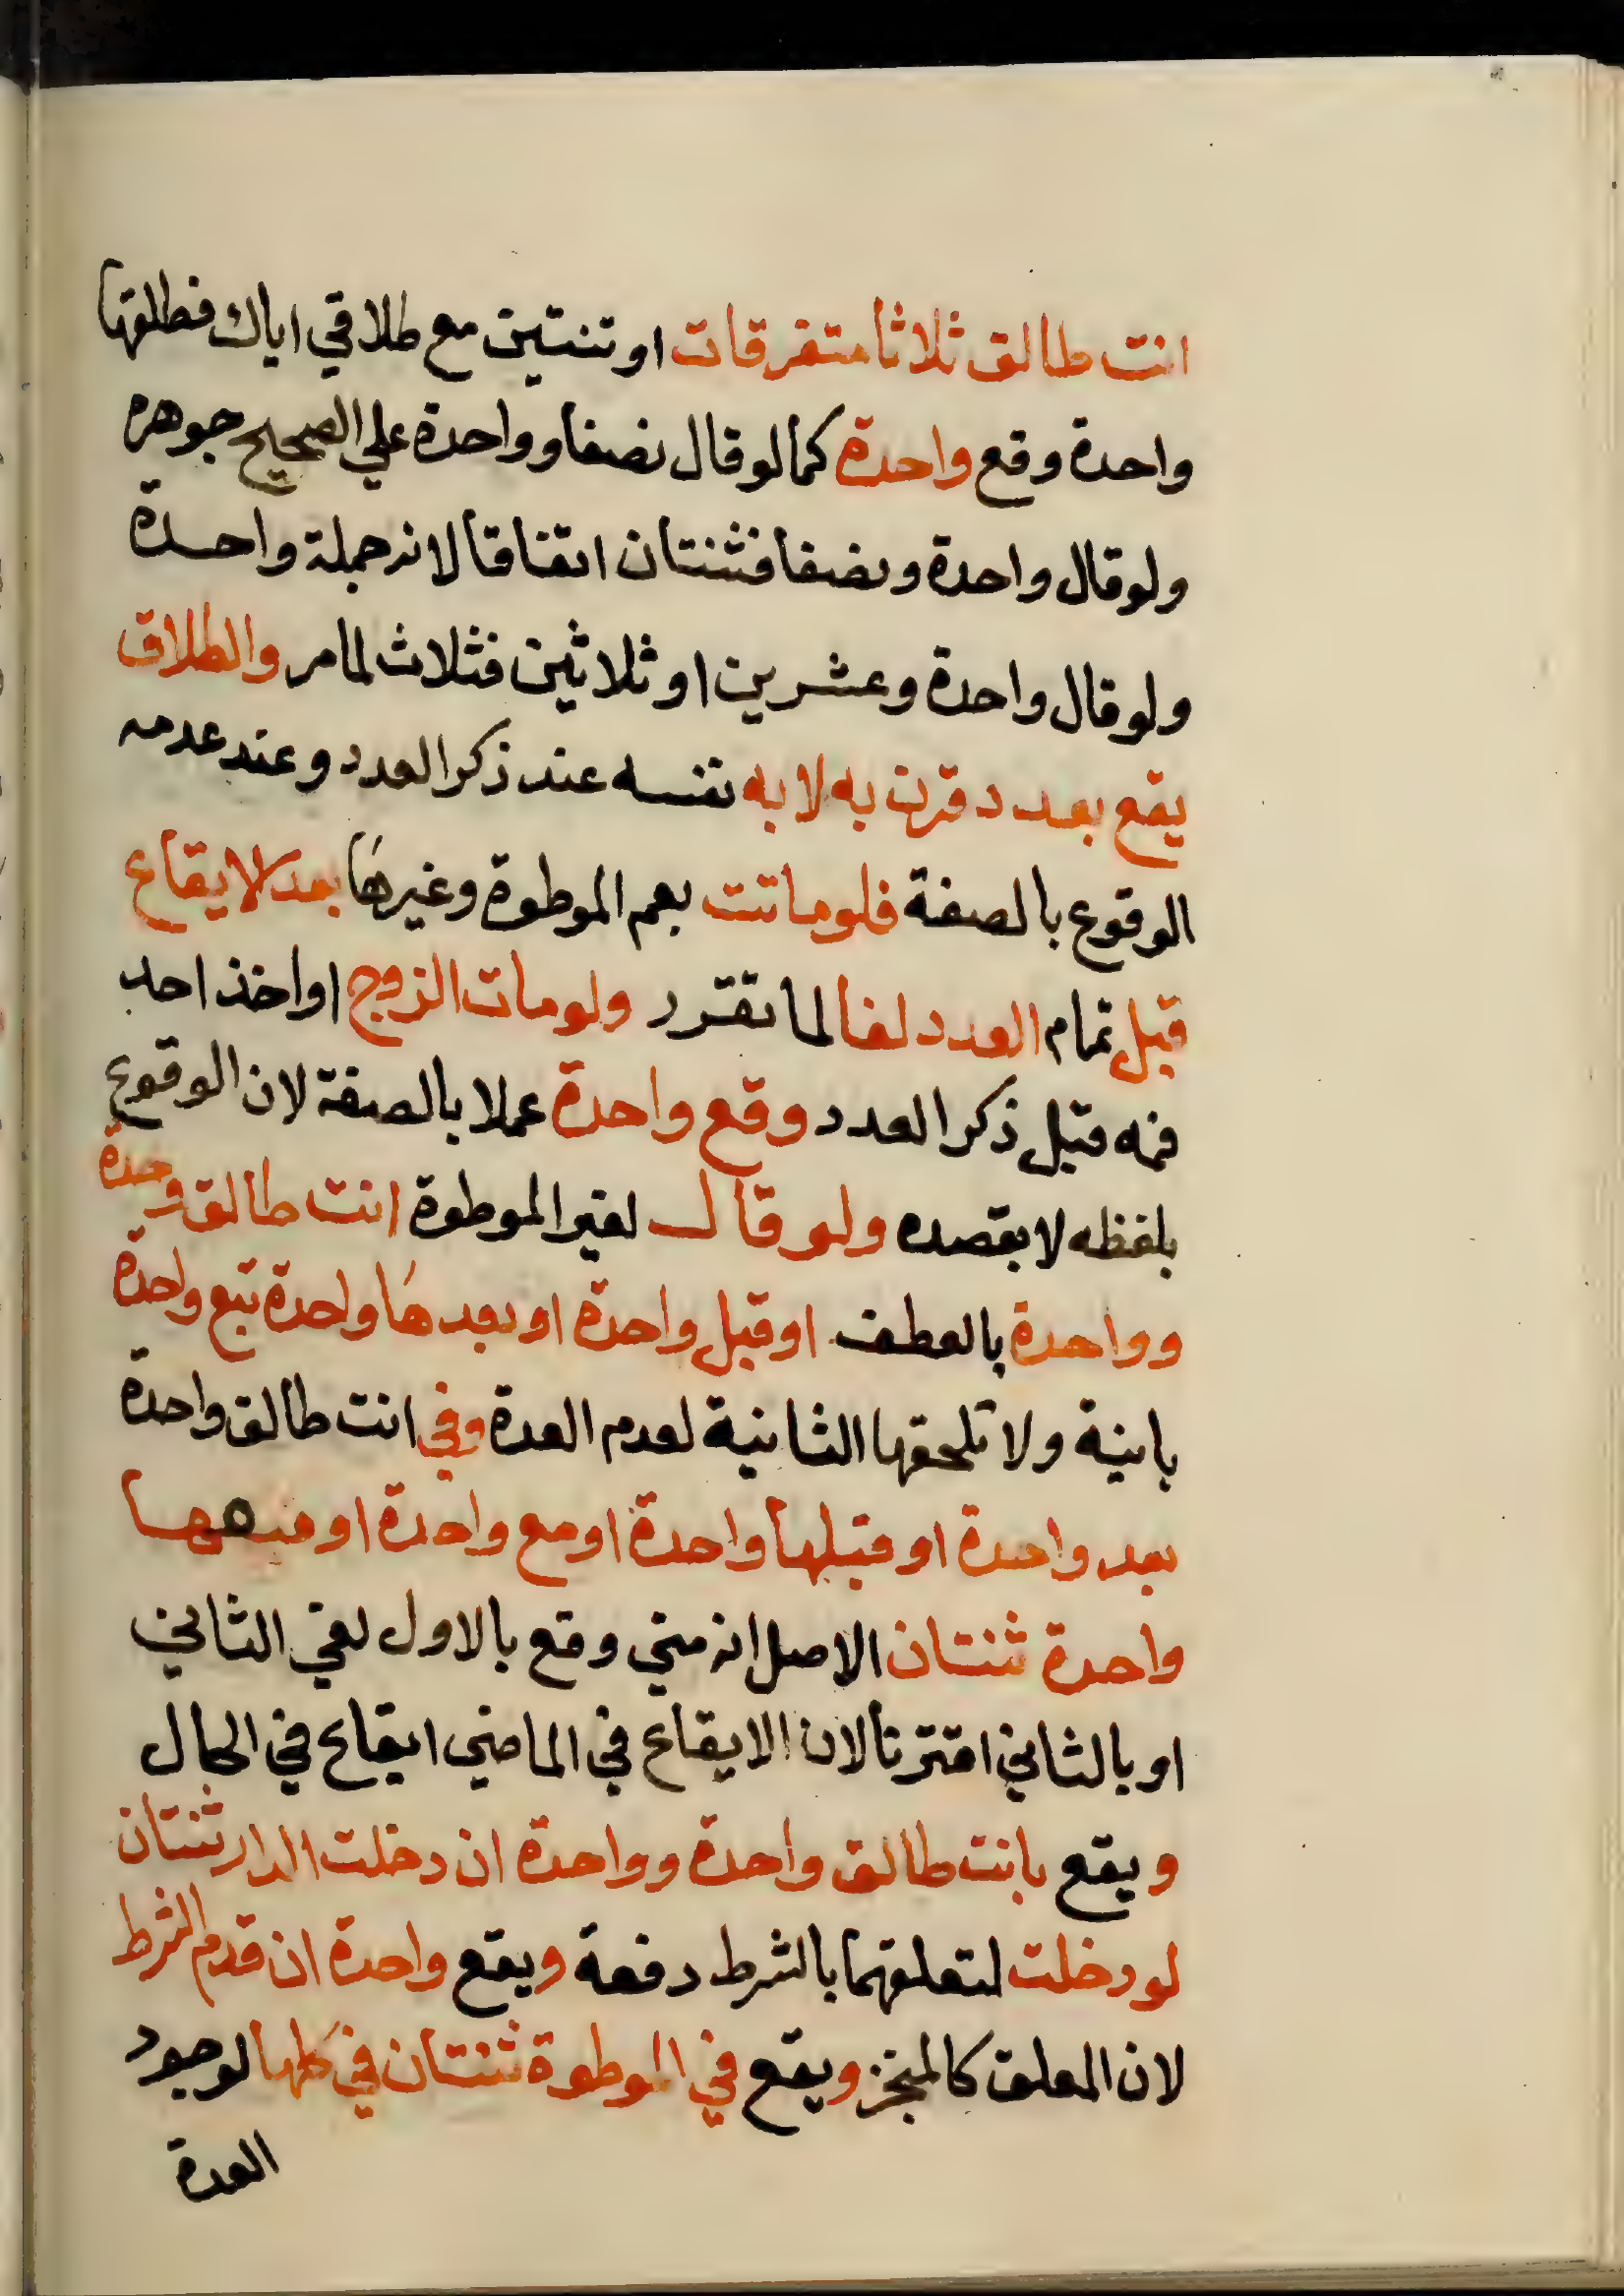 انت طالق ثلاثا متفرقات او ثنتين مع طلاقي اياك فطلقها
واحدة وقع واحدة كمالو قال نصفا وواحدة علي الصحيح جوهره
ولو قال واحدة ونصفا فثنتان اتفاقا لانه جملة واحدة
ولو قال واحدة وعشرين او ثلاثين فثلاث لمامر والطلاق
يقع بعدد قرن به لا به نفسه عند ذكر العدد وعند عدمه
الوقوع بالصفة فلو ماتت يعم الموطوة وغيرها بعد الايقاع
قبل تمام العدد لغا لما تقرر ولو مات الزوج او اخذ احد
فمه قبل ذكر العدد وقع واحدة عملا بالصفة لان الوقوع
بلفظه لا بقصده ولو قال لغير الموطوة انت طالق وحدة
وواحدة بالعطف او قبل واحدة او بعدها واحدة تقع واحدة
باينة ولا تلحقها الثانية لعدم العدة وفي انت طالق واحدة
بعد واحدة او قبلها واحدة او مع واحدة او معها
واحدة ثنتان الاصل انه متي وقع بالاول لغي الثاني
او بالثاني اقترنا لان الايقاع في الماضي ايقاع في الحال
ويقع بانت طالق واحدة وواحدة ان دخلت الدار ثنتان
لو دخلت لتعلقهما بالشرط دفعة ويقع واحدة ان قدم الشرط
لان المعلق كالمنجز ويقع في الموطوة ثنتان في كلها لوجود
العدة